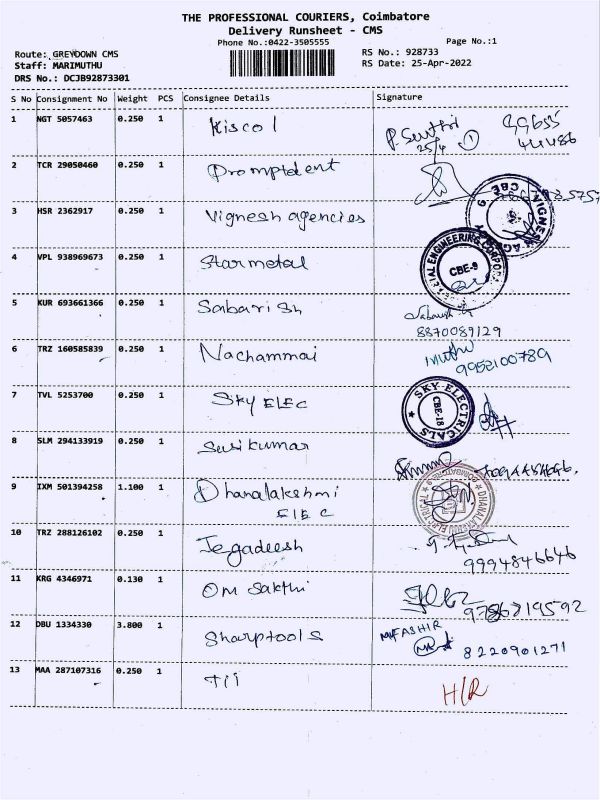 THE PROFESSIONAL COURIERS, Coimbatore
Delivery Runsheet - CMS
Phone No.:0422-3505555
Page No.:1
Route: GREYDOWN CMS
RS No.: 928733
Staff: MARIMUTHU
RS Date: 25-Apr-2022
DRS No.: DCJB92873301
S No Consignment No Weight PCS Consignee Details Signature
1 NGT 5057463 0.250 1 Kiscol
25/4 1
2 TCR 29050460 0.250 1 Promptdent
3 HSR 2362917 0.250 1 Vignesh agencies
4 VPL 938969673 0.250 1 Starmetal CBE-9
5 KUR 693661366 0.250 1 Sabarish
8870089129
6 TRZ 160585839 0.250 1 Nachammai Muthu
9952100789
7 TVL 5253700 0.250 1 Sky ELEC SKY ELECTRICALS CBE-18
8 SLM 294133919 0.250 1 Susikumar
9 IXM 501394258 1.100 1 Dhanalakshmi
ELEC
10 TRZ 288126102 0.250 1 Jegadeesh
9994846646
11 KRG 4346971 0.130 1 OM Sakthi
9786719592
12 DBU 1334330 3.800 1 Sharptools
8220901271
13 MAA 287107316 0.250 1 Tii H/R